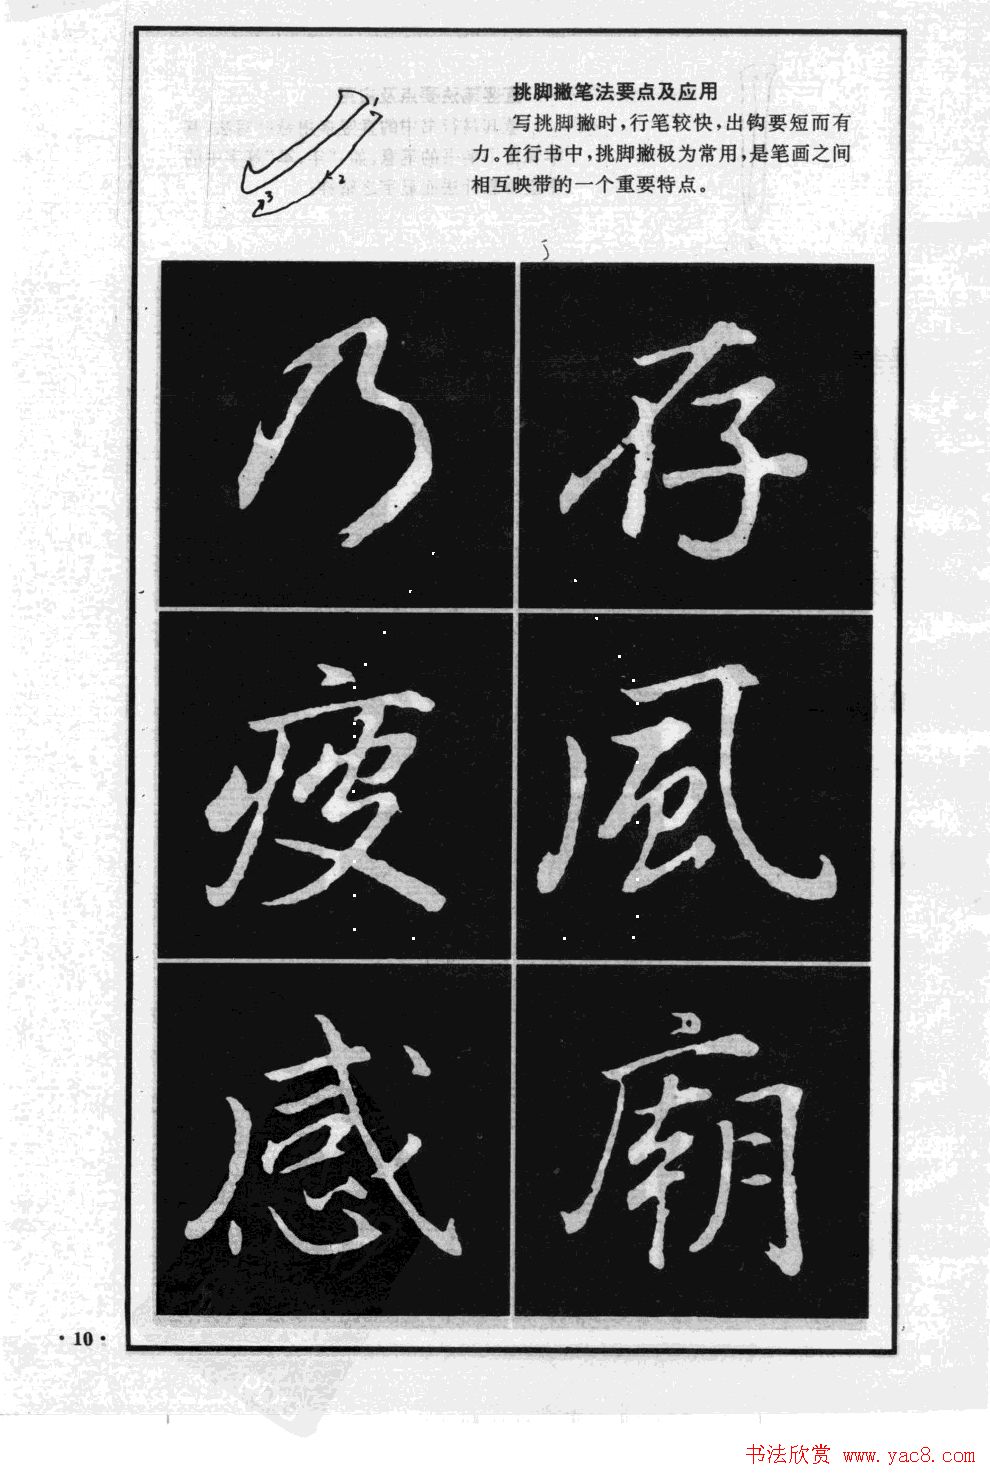 挑脚撇笔法要点及应用
写挑脚撇时,行笔较快,出钩要短而有
力。在行书中,挑脚撇极为常用,是笔画之间
相互映带的一个重要特点。
1
2
3
存
乃
風
疫
廟
感
·10·
书法欣赏 www.yac8.com